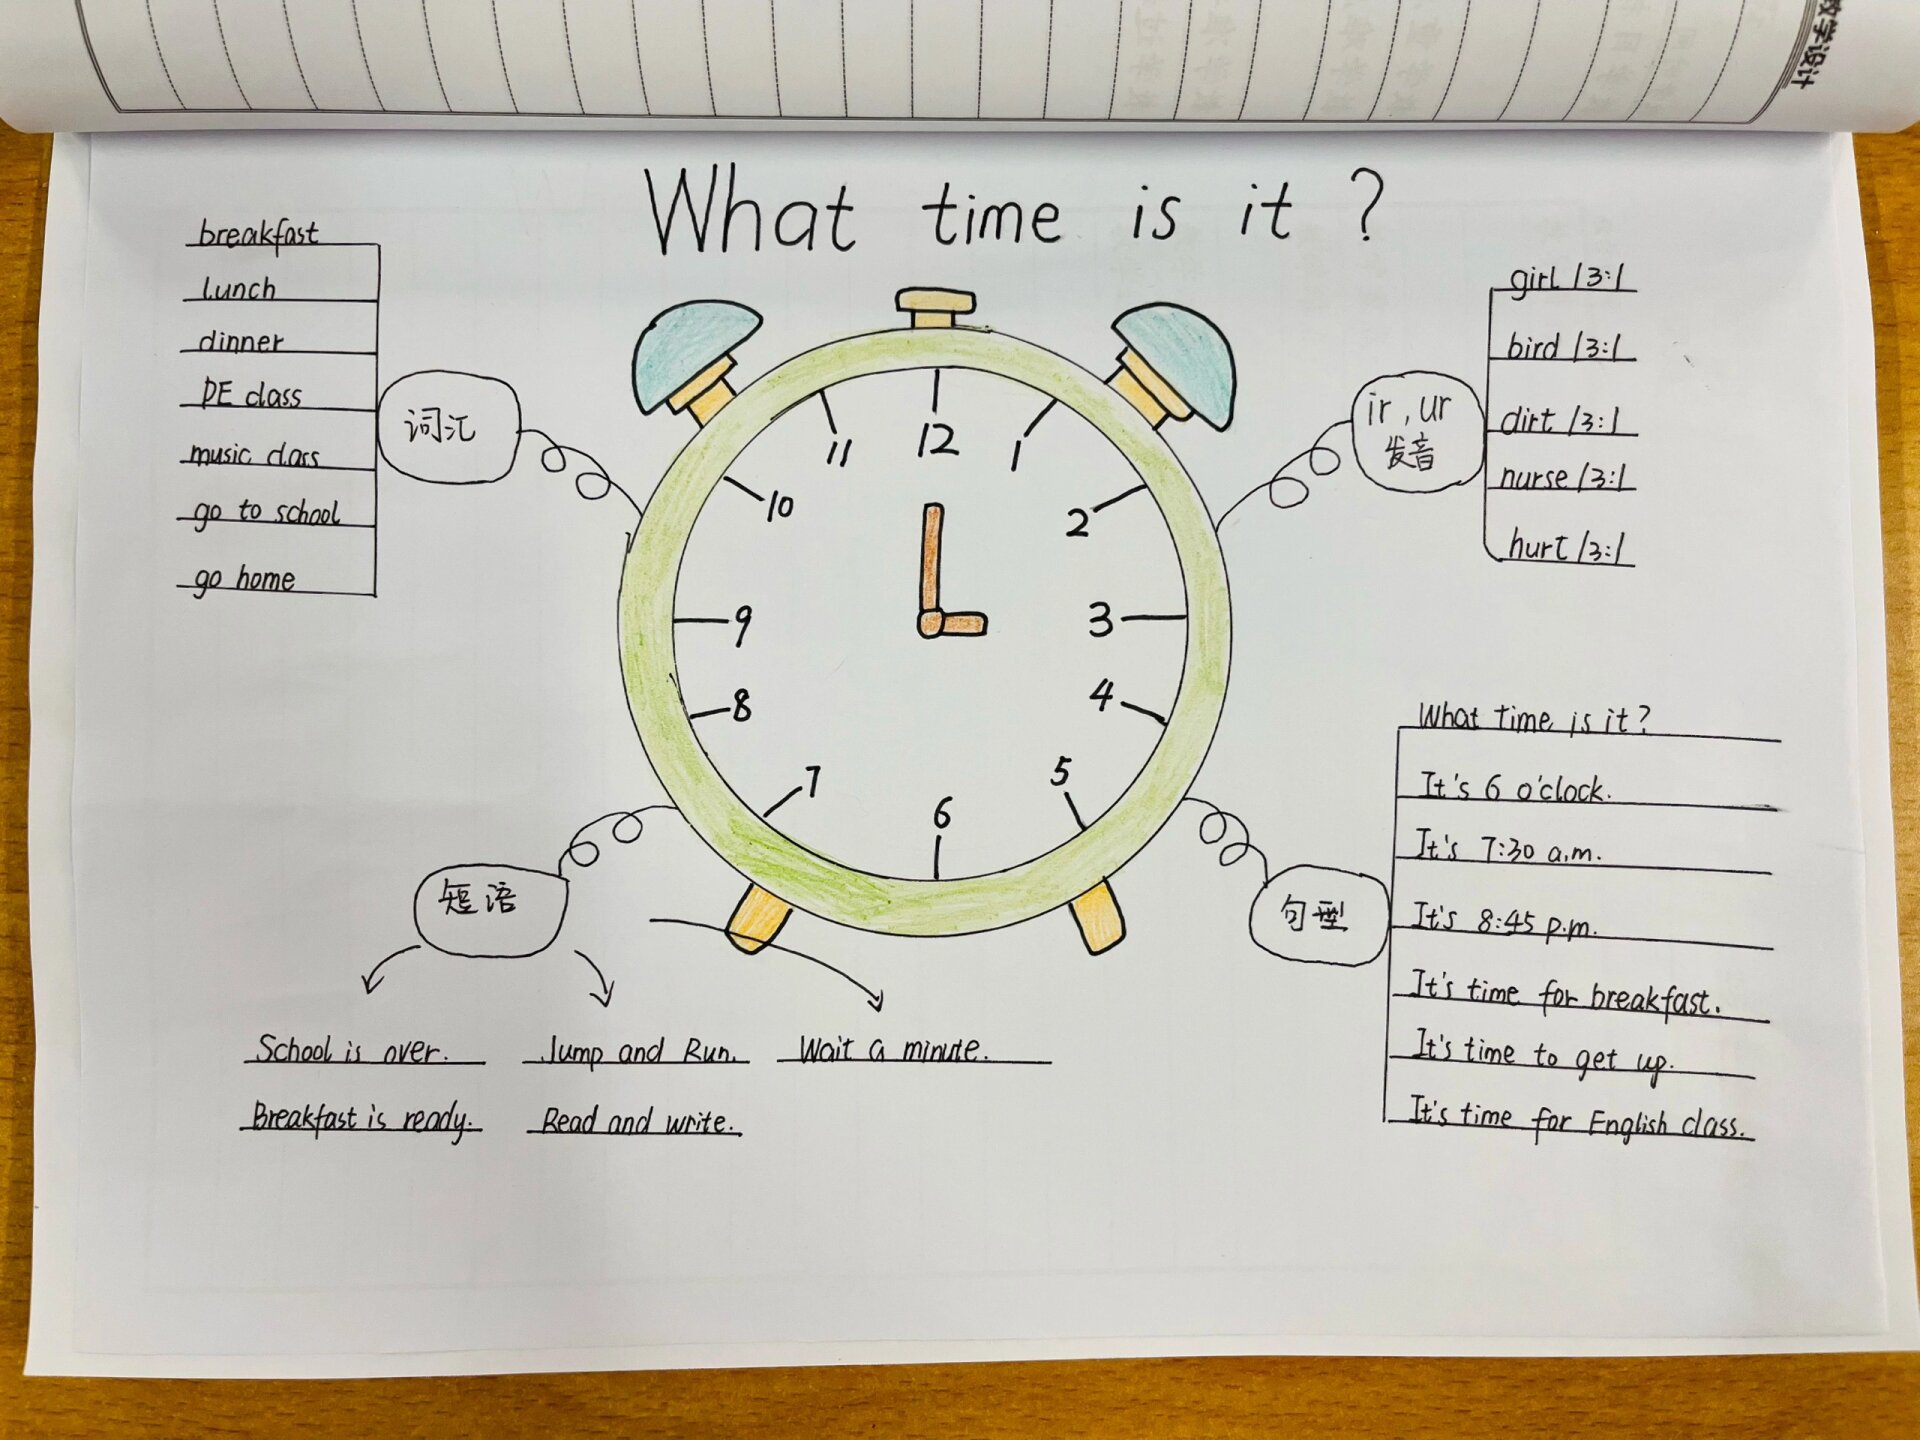 教学设计
What time is it?
breakfast
lunch
dinner
PE class
music class
go to school
go home
词汇
ir, ur
发音
girl /3:/
bird /3:/
dirt /3:/
nurse /3:/
hurt /3:/
12
1
2
3
4
5
6
7
8
9
10
11
短语
School is over.
Jump and Run.
Wait a minute.
Breakfast is ready.
Read and write.
句型
What time is it?
It's 6 o'clock.
It's 7:30 a.m.
It's 8:45 p.m.
It's time for breakfast.
It's time to get up.
It's time for English class.